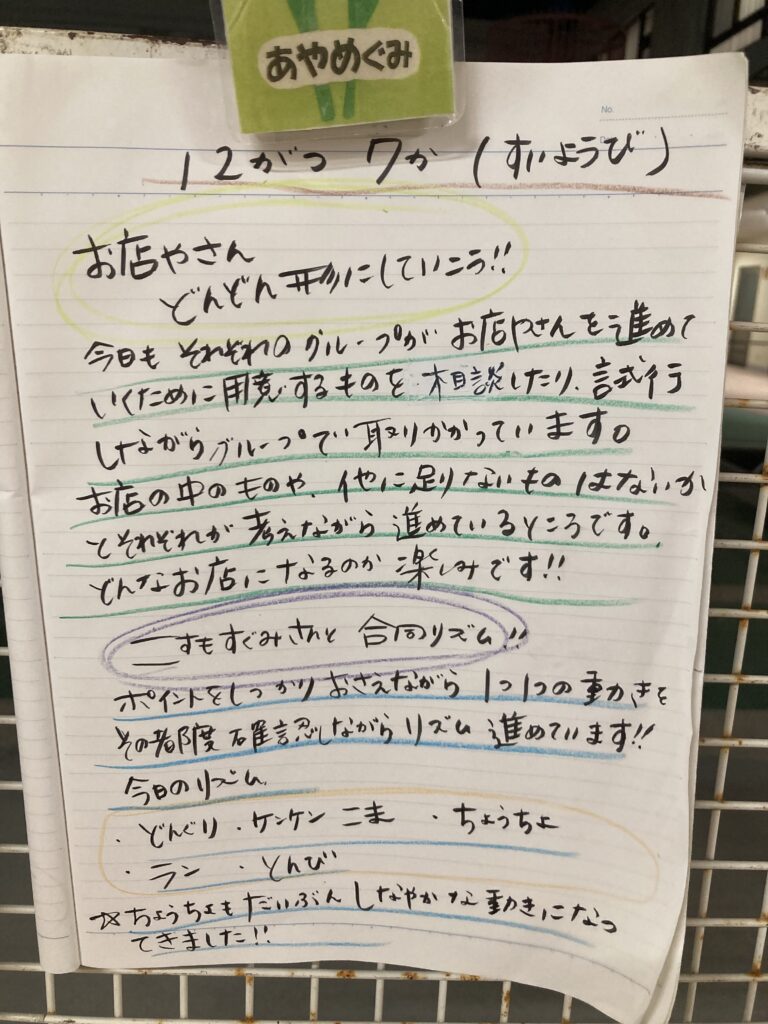 あやめぐみ
No.
12がつ 7か (すいようび)
お店やさん
どんどん形にしていこう!!
今日も それぞれのグループが お店やさんを進めて
いくために用意するものを 相談したり、試行
しながらグループで取りかかっています。
お店の中のものや、他に足りないものはないか
とそれぞれが 考えながら 進めているところです。
どんなお店になるのか 楽しみです!!
こすもすぐみさんと 合同リズム!!
ポイントをしっかりおさえながら 1つ1つの動きを
その都度 確認しながら リズム 進めています!!
今日のリズム
・どんぐり ・ケンケン こま ・ちょうちょ
・ラン ・とんび
☆ちょうちょも だいぶん しなやかな 動きになっ
てきました!!